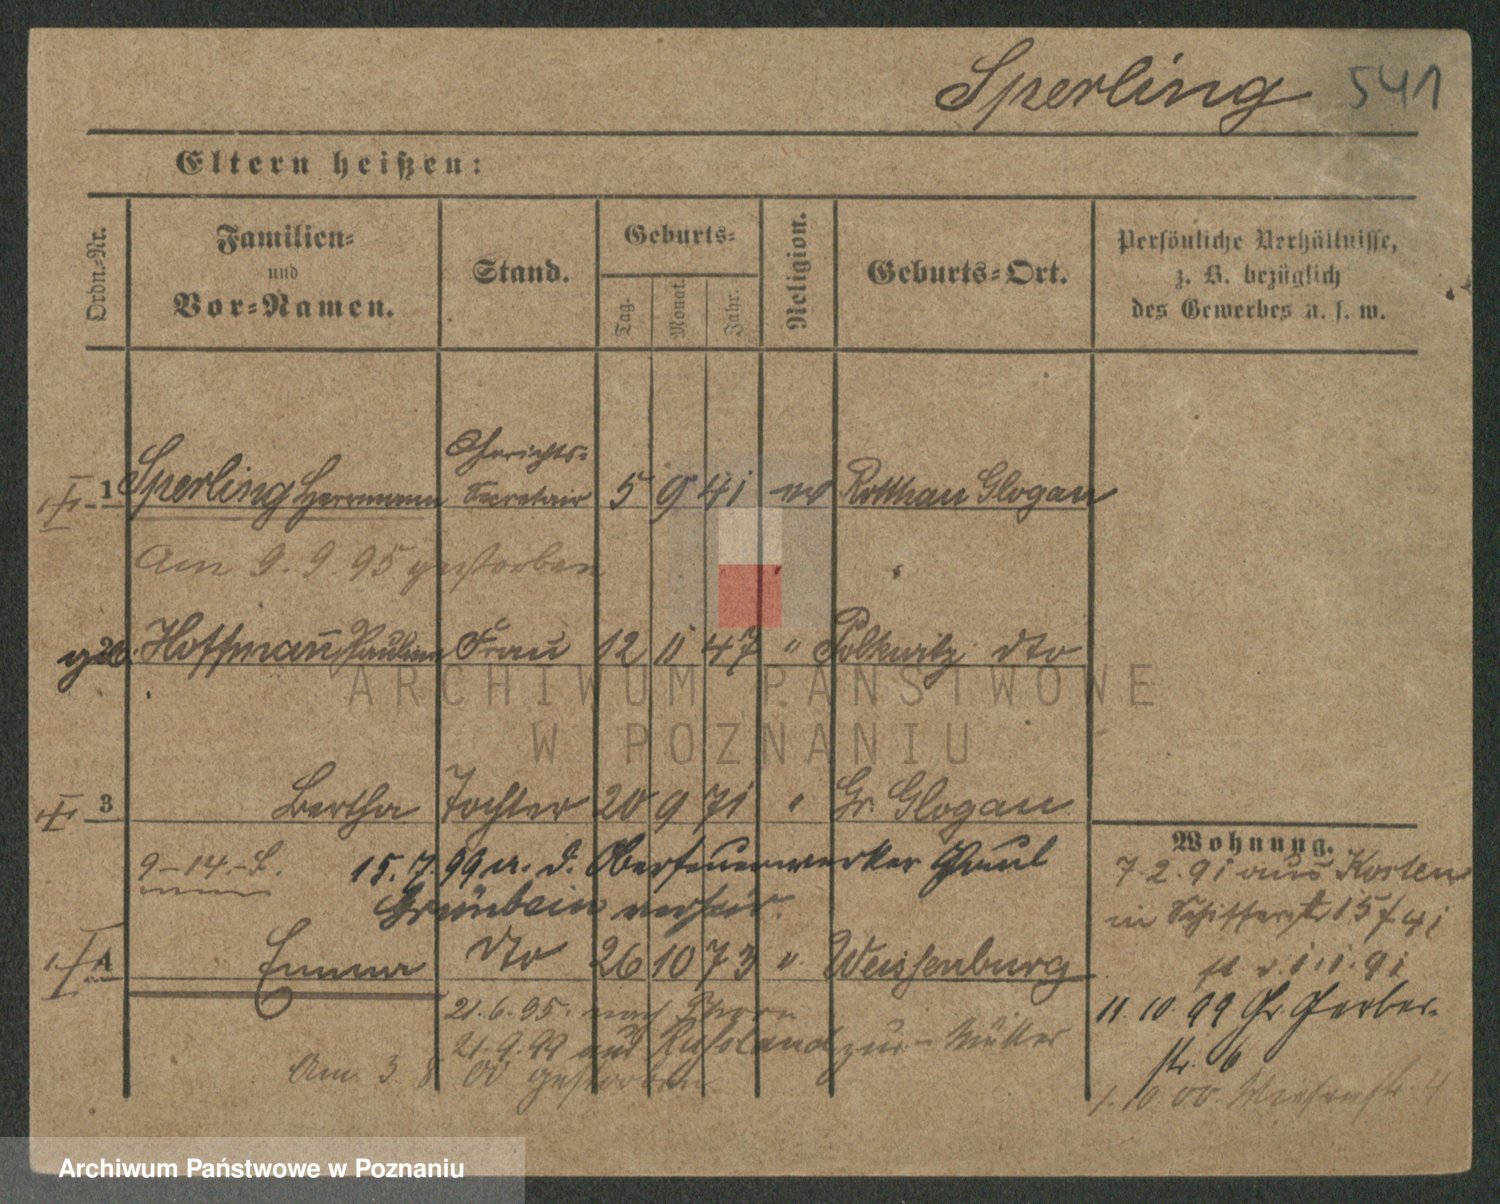 Sperling 541
Eltern heißen:
Ordn.-Nr.
Familien-
und
Vor-Namen.
Stand.
Geburts-
Tag.
Monat.
Jahr.
Religion.
Geburts-Ort.
Persönliche Verhältnisse,
z. B. bezüglich
des Gewerbes u. s. w.
Gerichts-
1 Sperling Herrmann Secretair 5 9 41 Glogau
Am 9. 9. 95 gestorben
2 Hoffmann Pauline Frau 12 11 47 " Polkwitz dto
ARCHIWUM PAŃSTWOWE
W POZNANIU
3 Bertha Tochter 20 9 71 " Gr. Glogau
9-14.-L. 15. 7. 99 a. d. Oberfeuerwerker Paul
Grünbein verheir.
4 Emma dto 26 10 73 " Weissenburg
21. 6. 95. nach Thorn
21. 9. 99 aus Russland zur Mutter
Am 3 8 00 gestorben
Wohnung.
7. 2. 91 aus Kosten
in Schifferstr 15 f 41
1. 1. 91
11. 10. 99 Gr Gerber-
str. 6
1. 10 00 Wiesenstr. 4
Archiwum Państwowe w Poznaniu